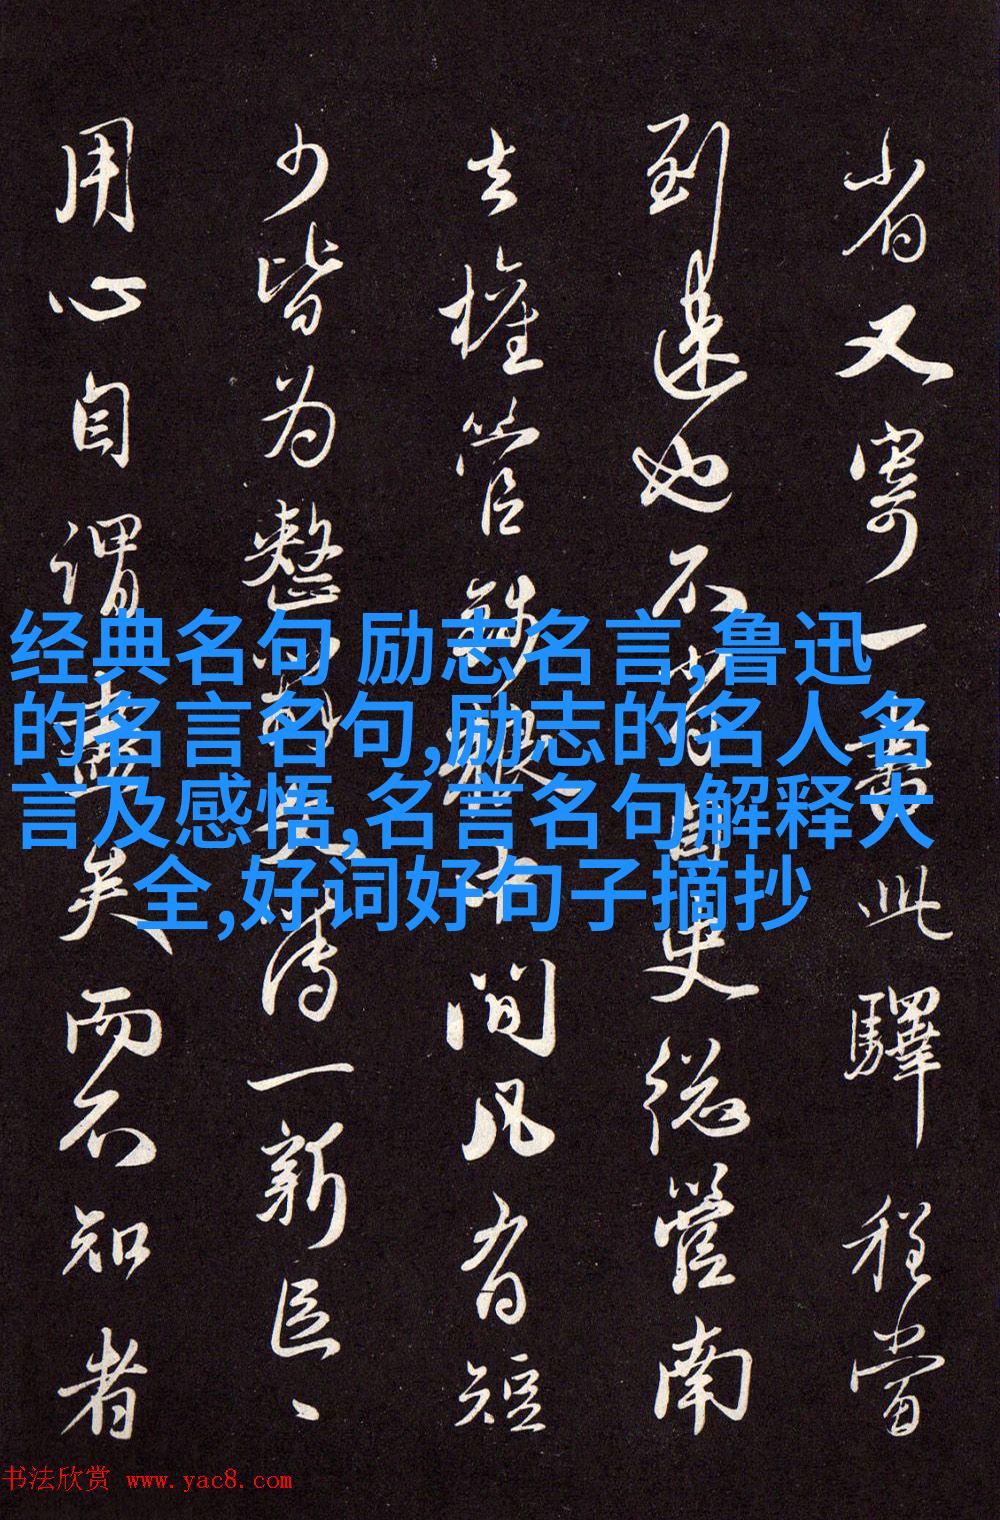 省又寄一書此驛程當
到遠也不
史從營南
去權管
間凡有短
少皆为整
一新臣
用心自謂盡矣而不知者
经典名句 励志名言,鲁迅
的名言名句,励志的名人名
言及感悟,名言名句解释大
全,好词好句子摘抄
书法欣赏 www.yac8.com